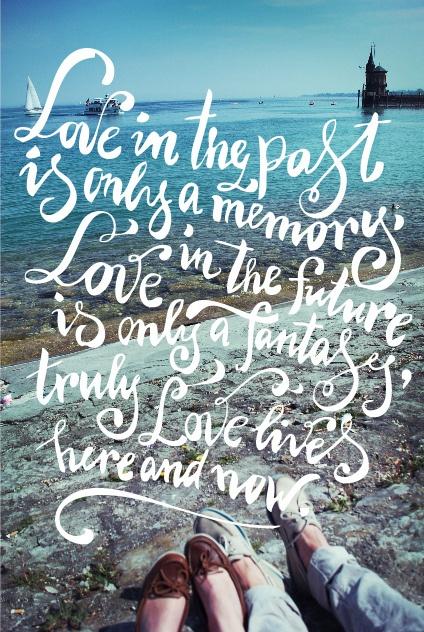 Love in the past
is only a memory,
Love in the future
is only a fantasy,
truly Love lives
here and now.